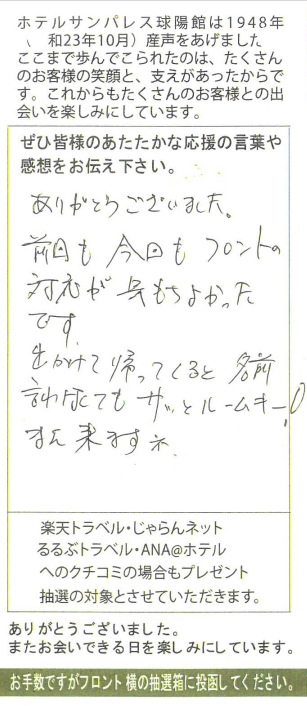 ホテルサンパレス球陽館は1948年
( 和23年10月）産声をあげました
ここまで歩んでこられたのは、たくさん
のお客様の笑顔と、支えがあったからで
す。これからもたくさんのお客様との出
会いを楽しみにしています。
ぜひ皆様のあたたかな応援の言葉や
感想をお伝え下さい。
ありがとうございました。
前回も今回もフロントの
対応が気もちよかった
です。
出かけて帰ってくると名前
言わなくてもサッとルームキー!
また来ますネ
楽天トラベル・じゃらんネット
るるぶトラベル・ANA@ホテル
へのクチコミの場合もプレゼント
抽選の対象とさせていただきます。
ありがとうございました。
またお会いできる日を楽しみにしています。
お手数ですがフロント横の抽選箱に投函してください。